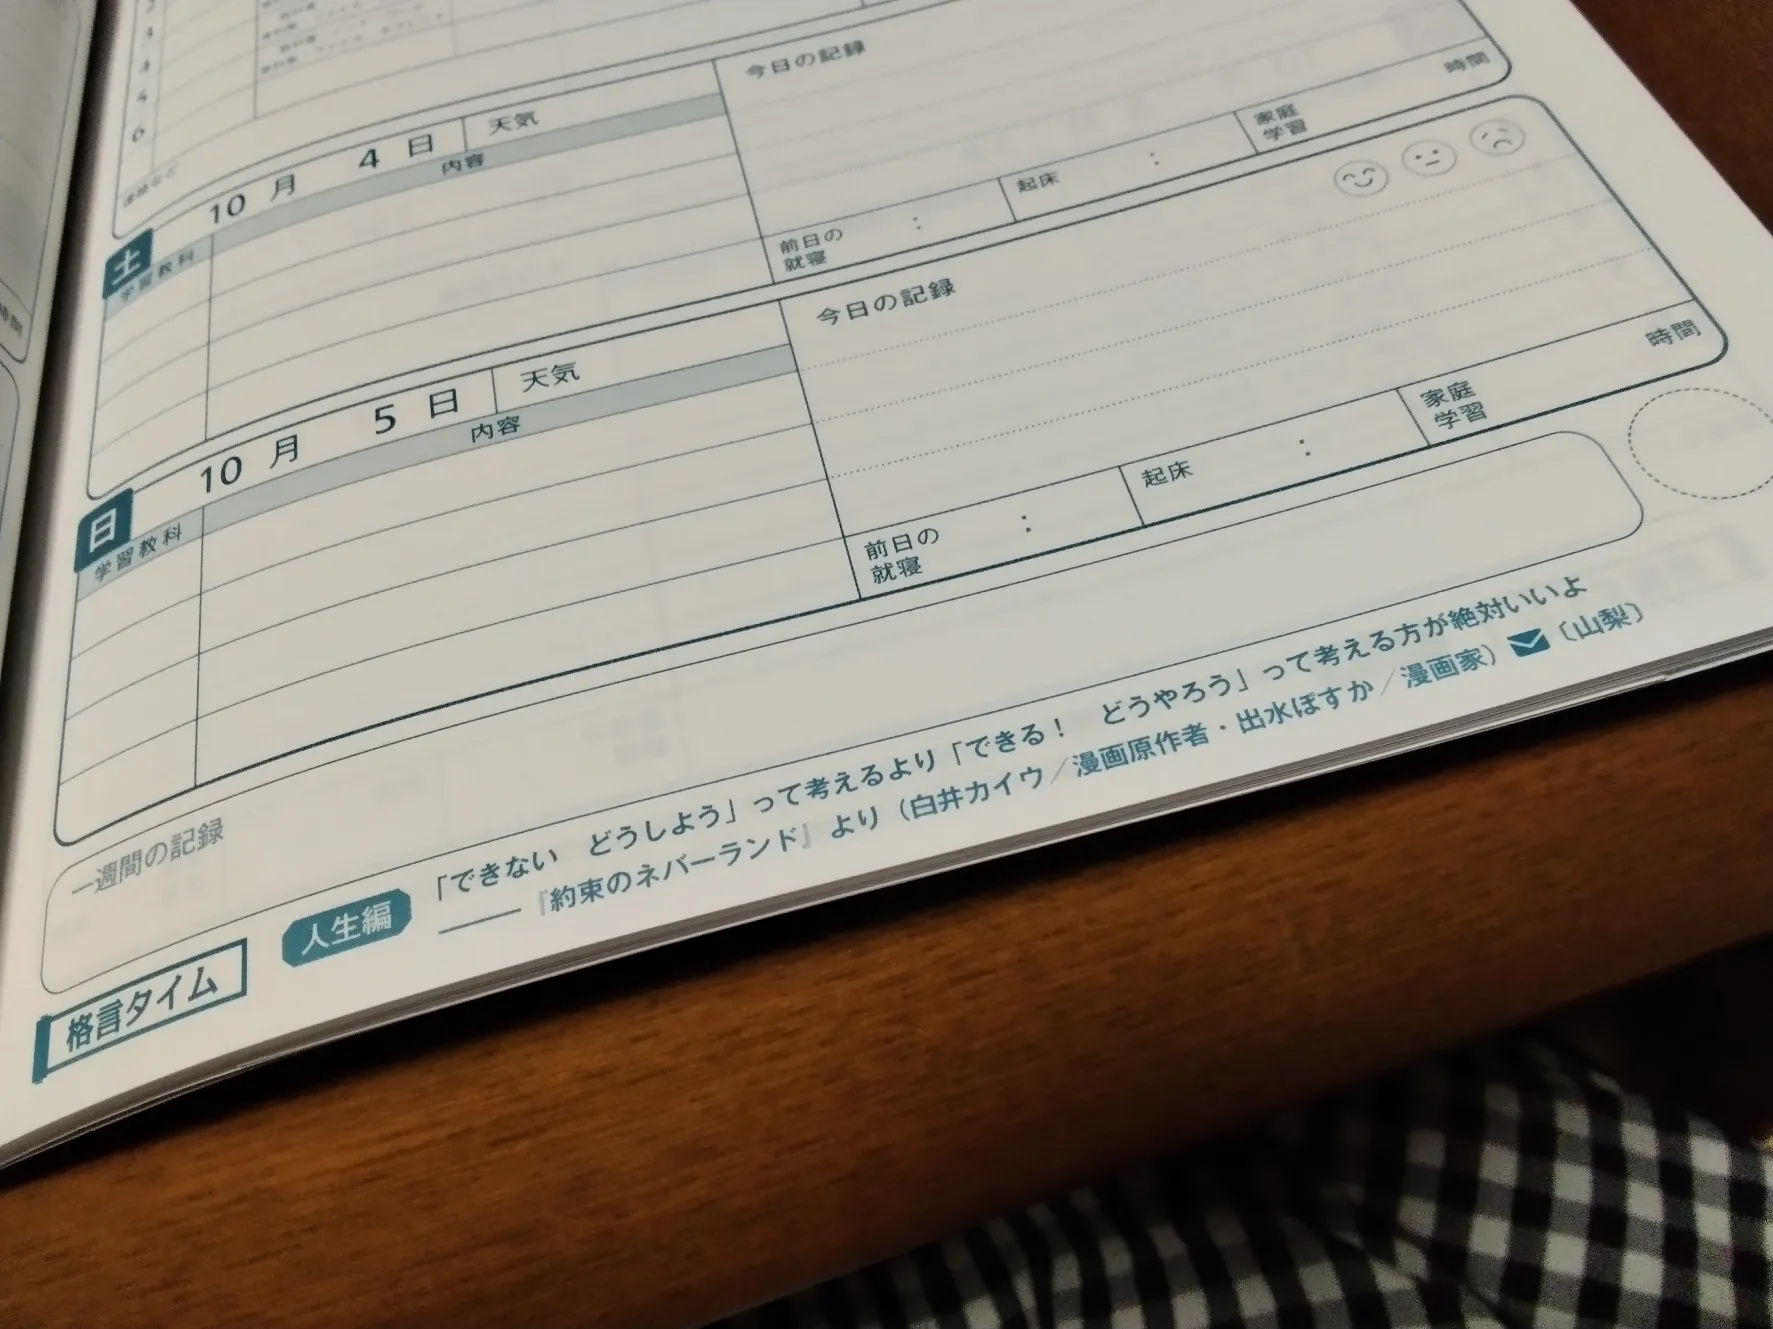 3
4
5
6
連絡など
今日の記録
時間
土
10 月 4 日
天気
学習教科
内容
前日の
就寝
:
起床
:
家庭
学習
日
10 月 5 日
天気
学習教科
内容
今日の記録
時間
前日の
就寝
:
起床
:
家庭
学習
一週間の記録
格言タイム
人生編
「できない どうしよう」って考えるより「できる! どうやろう」って考える方が絶対いいよ
――『約束のネバーランド』より(白井カイウ/漫画原作者・出水ぽすか/漫画家)〔山梨〕
時間